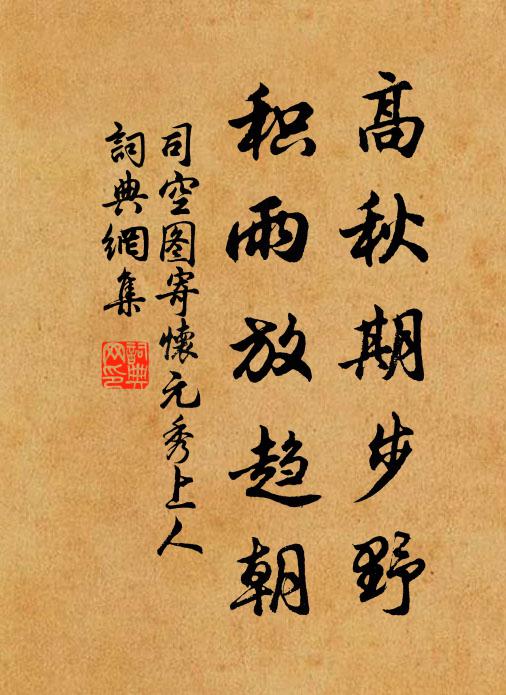 高秋期步野
积雨放趋朝
司空图寄怀元秀上人
词典網集
詞典网印